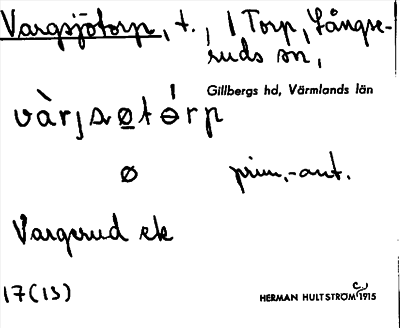 Vargsjötorp, t., 1 Torp, Långse-
ruds sn,
Gillbergs hd, Värmlands län
prim.-ant.
Vargerud ek
17(13)
HERMAN HULTSTRÖM 1915